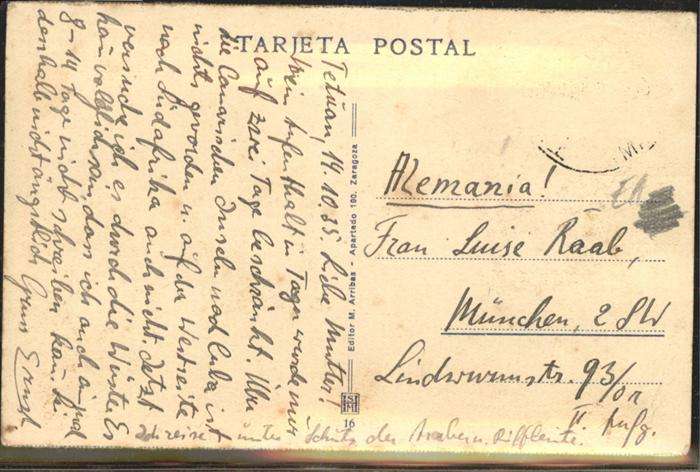 TARJETA POSTAL
Tetuan, 14.10.35. Liebe Mutter!
Mein Aufenthalt in Tanger wurde nur
auf zwei Tage beschränkt. Über
die Canarischen Inseln nach Cuba ist
nichts geworden u. auf der Westseite
nach Südafrika auch nicht. Jetzt
versuche ich es durch die Wüste. Es
kann möglich sein, dass ich auch einmal
8-14 Tage nicht schreiben kann. Sei
deshalb nicht ängstlich. Gruss Ernst
Ich reise unter Schutz der Araber u. Riffleute.
Editor M. Arribas - Apartado 190. Zaragoza
16
Alemania!
Frau Luise Raab,
München, 2 SW
Lindwurmstr. 93/01
II. Aufg.